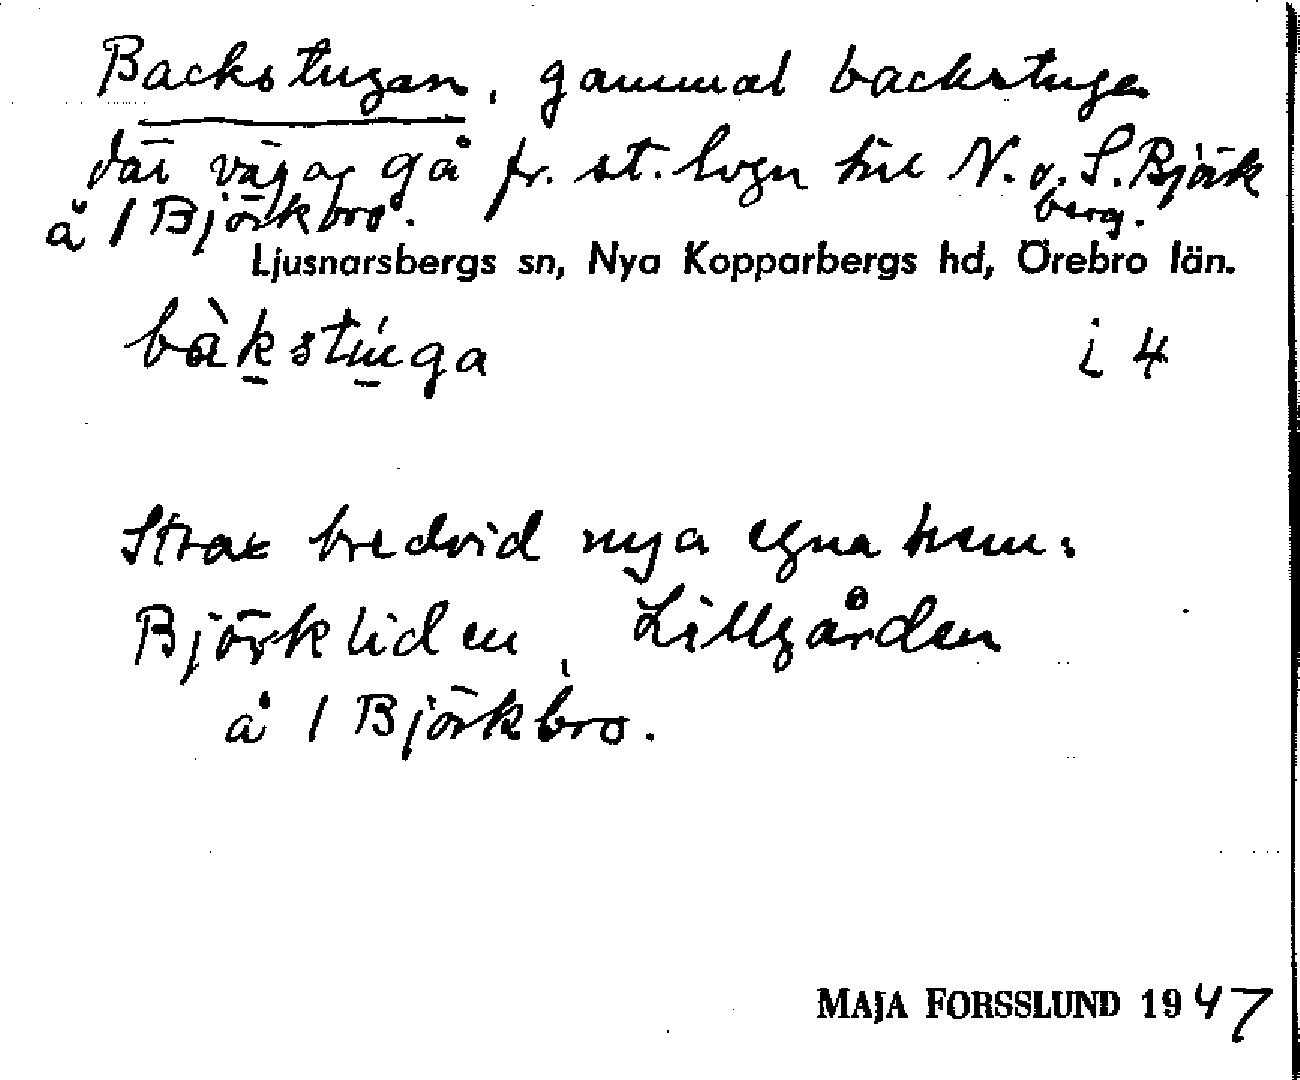 Backstugan, gammal backstuga
där vägar gå fr. st. lvgn till N. o. S. Björk
berg.
å 1 Björkbro.
Ljusnarsbergs sn, Nya Kopparbergs hd, Örebro län.
bàkstúga i 4
Strax bredvid nya egna hem:
Björkliden, Lillgården
å 1 Björkbro.
MAJA FORSSLUND 1947